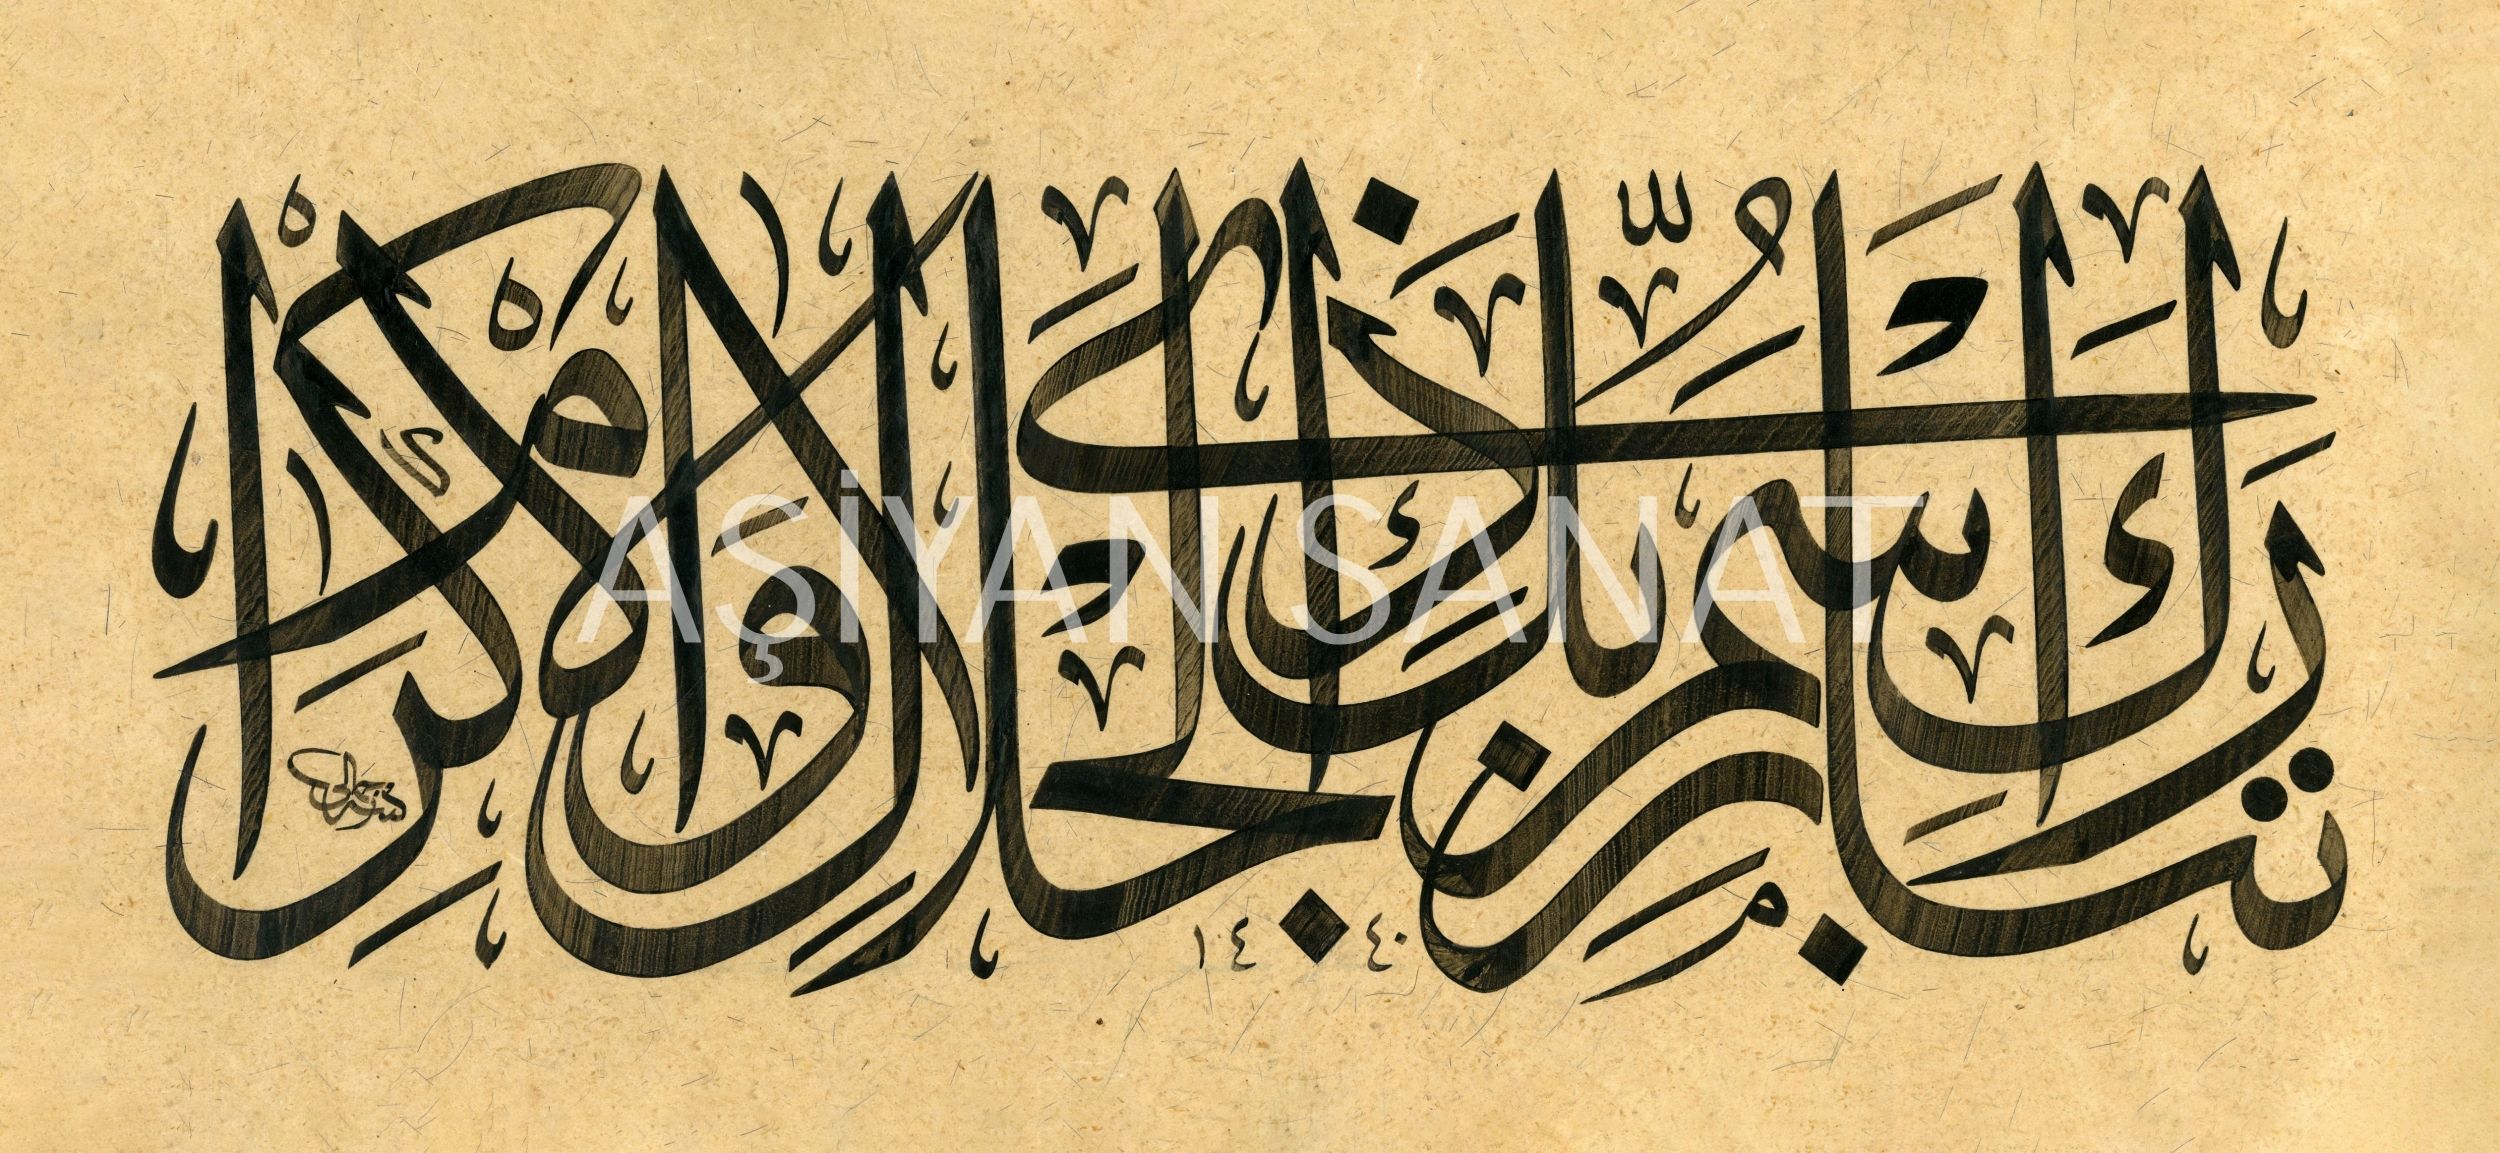 تَبَارَكَ اسْمُ رَبِّكَ ذِي الْجَلَالِ وَالْإِكْرَامِ
١٤٤٠
AŞİYAN SANAT